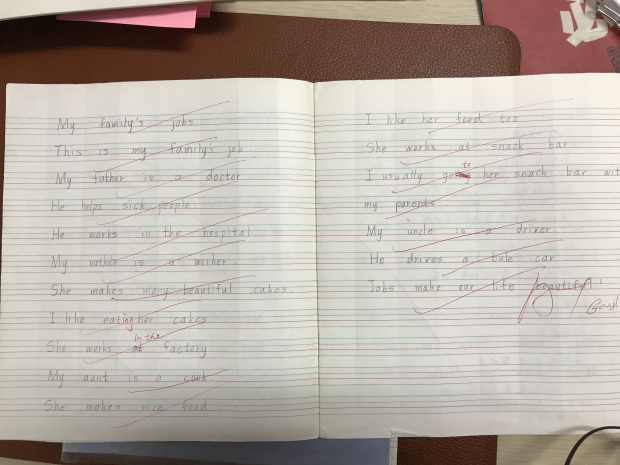 My family's jobs
This is my family's job.
My father is a doctor
He helps sick people.
He works in the hospital.
My mother is a worker.
She makes many beautiful cakes.
I like eating her cakes
in the
She works at factory
My aunt is a cook.
She makes nice food
I like her food too
She works at snack bar.
to
I usually go her snack bar wit
my parents.
My uncle is a driver.
He drives a bule car.
Jobs make our life beautiful!